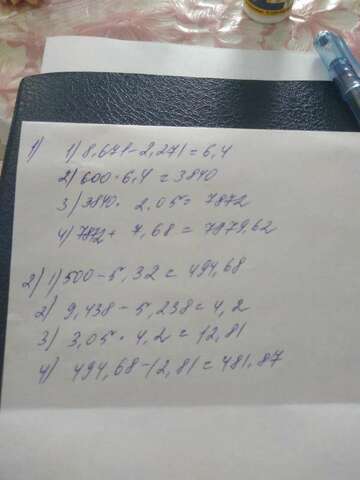 1) 1) 8,671-2,271=6,4
2) 600·6,4=3840
3) 3840·2,05=7872
4) 7872+7,68=7979,62
2) 1) 500-5,32=494,68
2) 9,438-5,238=4,2
3) 3,05·4,2=12,81
4) 494,68-12,81=481,87